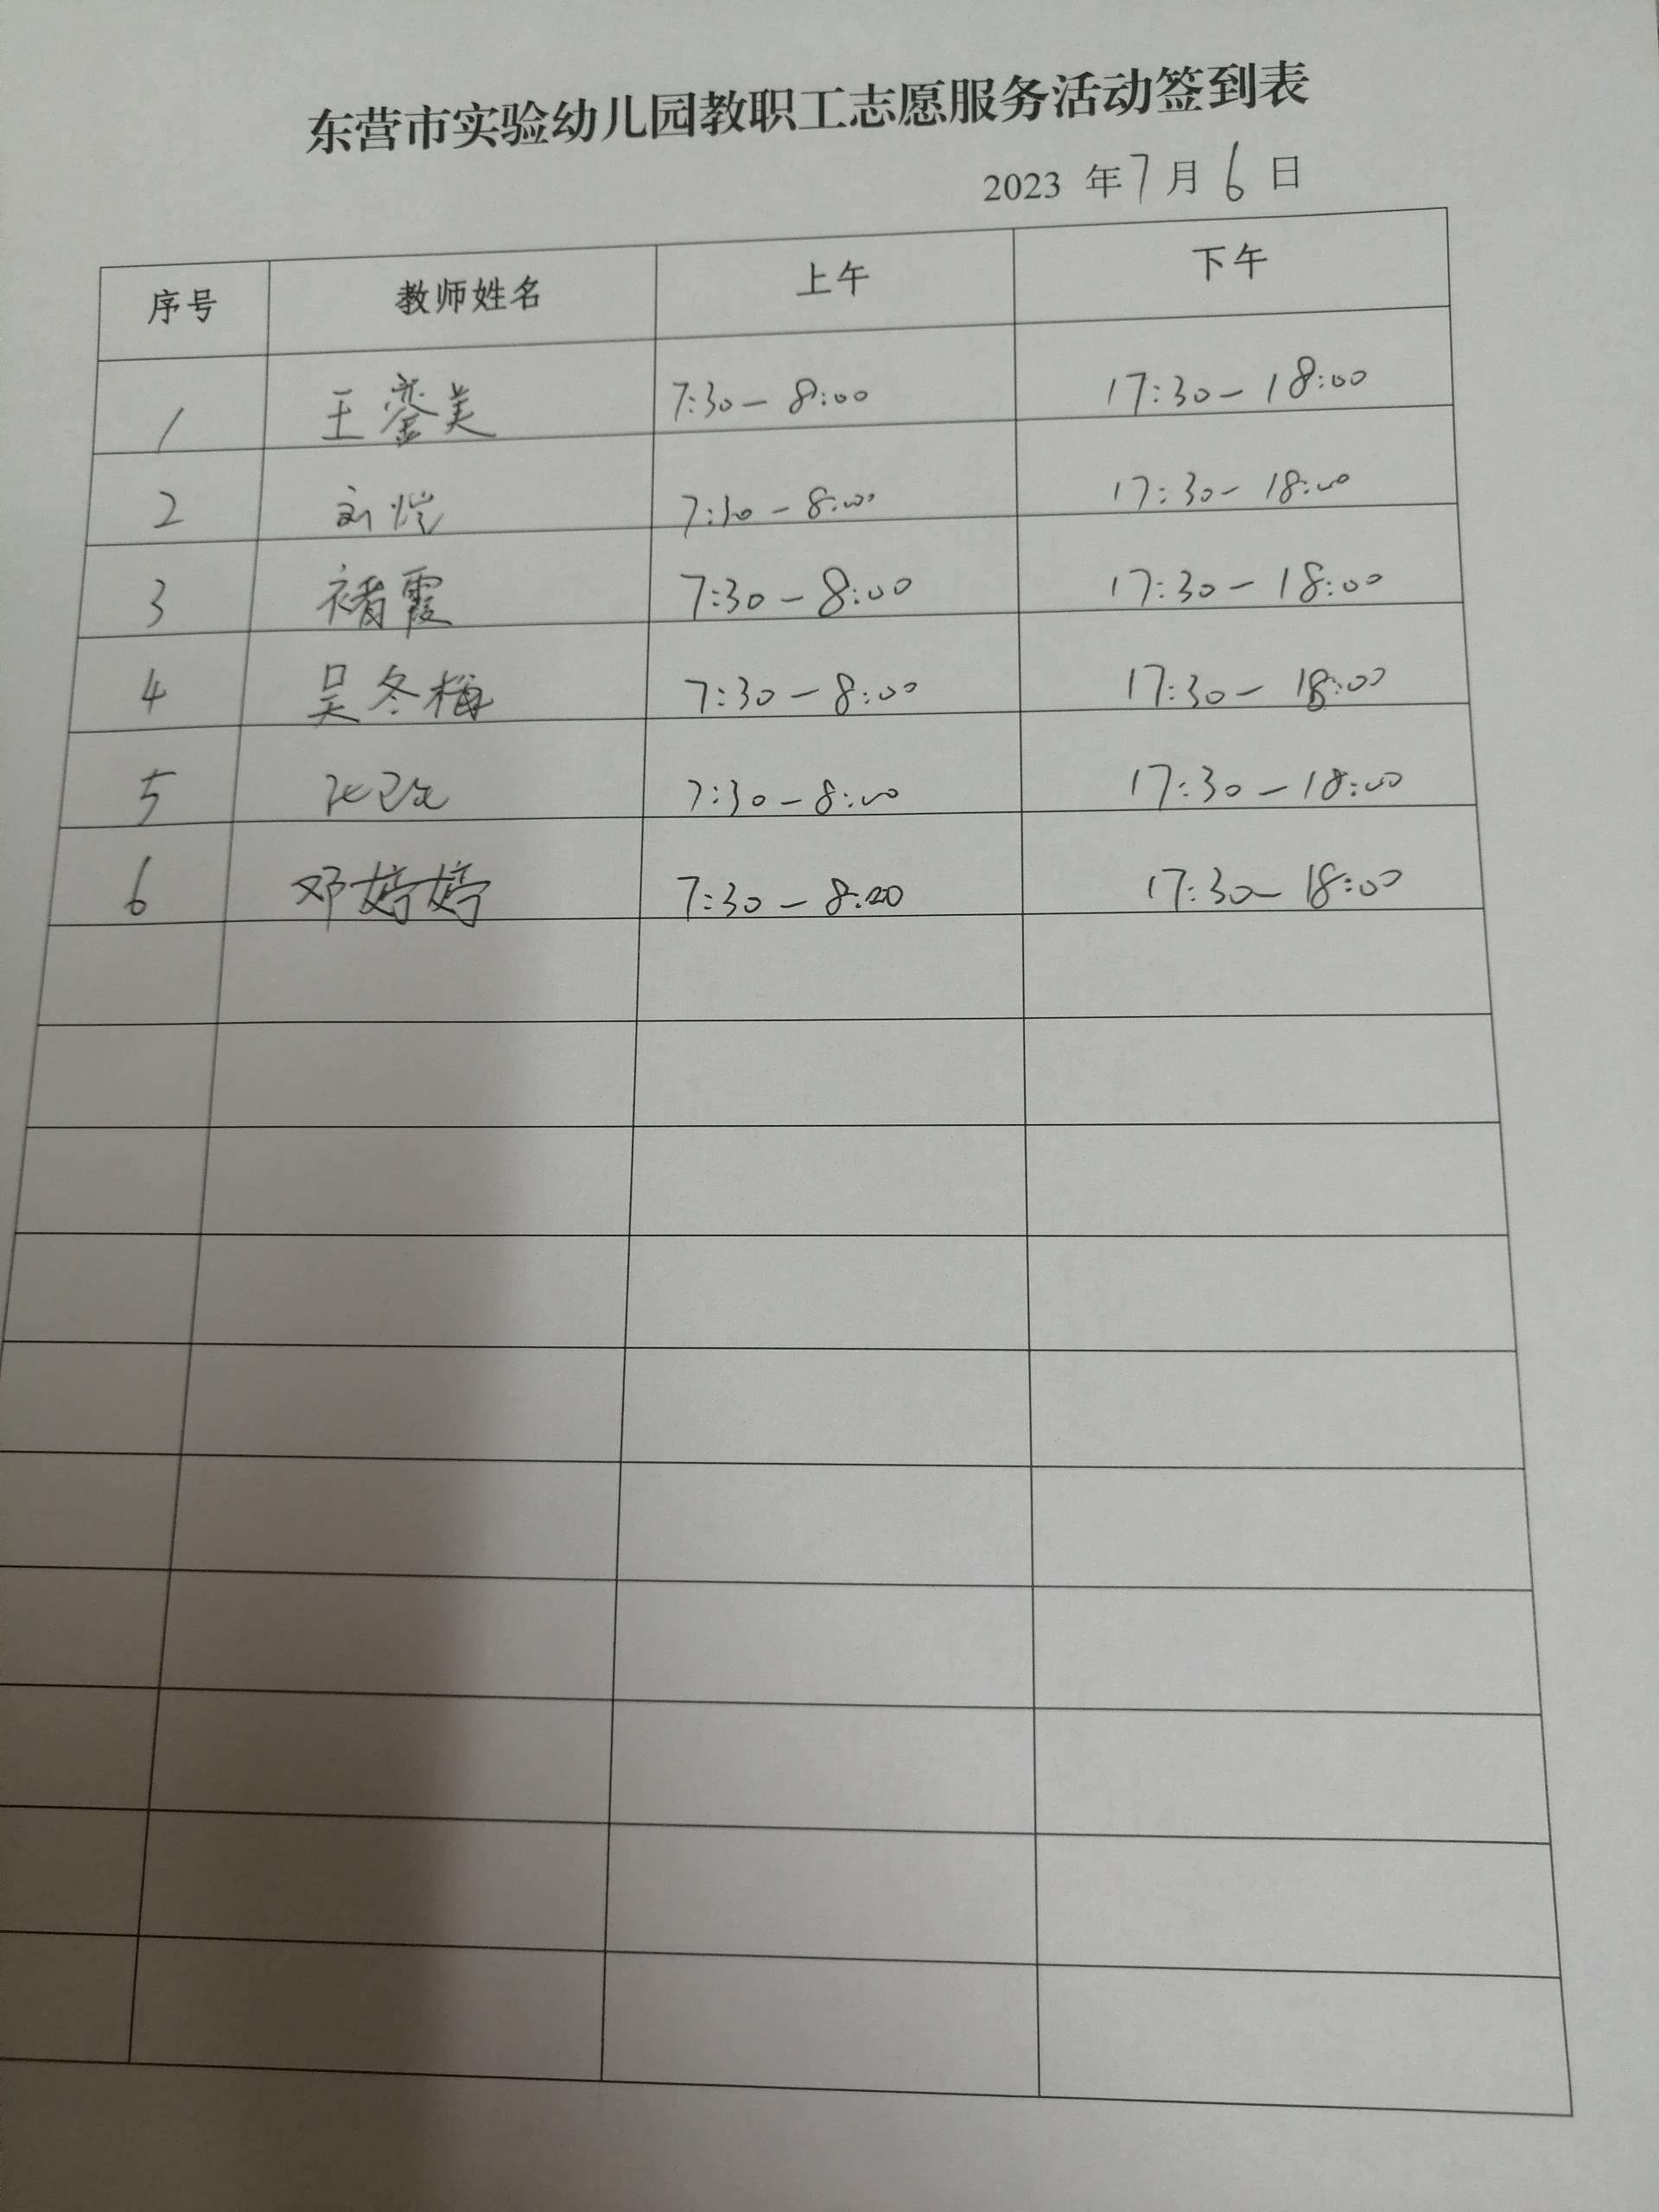 东营市实验幼儿园教职工志愿服务活动签到表
2023 年 7 月 6 日
序号 教师姓名 上午 下午
1 王銮美 7:30-8:00 17:30-18:00
2 刘恺 7:30-8:00 17:30-18:00
3 褚霞 7:30-8:00 17:30-18:00
4 吴冬梅 7:30-8:00 17:30-18:00
5 7:30-8:00 17:30-18:00
6 邓婷婷 7:30-8:00 17:30-18:00